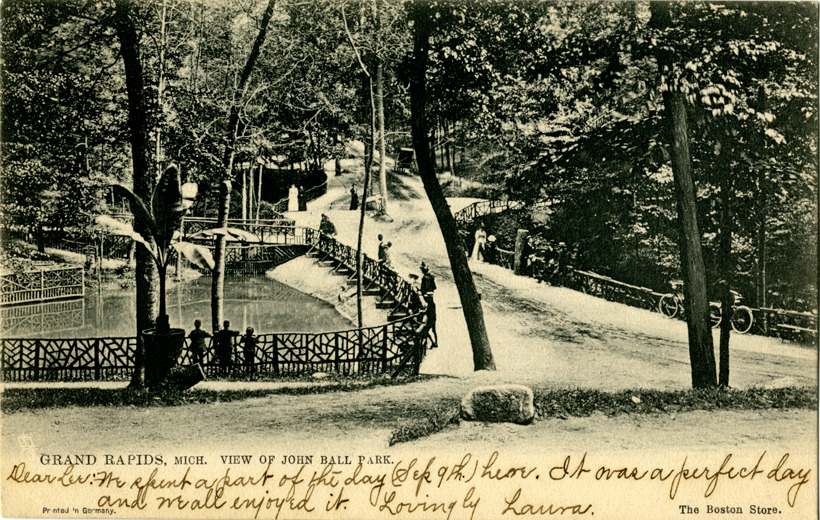 GRAND RAPIDS, MICH. VIEW OF JOHN BALL PARK.
Dear Lee: We spent a part of the day (Sep 9th) here. It was a perfect day
and we all enjoyed it. Lovingly Laura.
Printed in Germany.
The Boston Store.